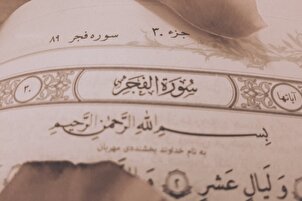 جزء ۳۰ سوره فجر ۸۹
آیاتها سُورَةُ الفَجْرِ ۳۰
بِسْمِ اللَّهِ الرَّحْمٰنِ الرَّحِيمِ
به نام خداوند بخشنده‌ی مهربان
وَلَيَالٍ عَشْرٍ ۲